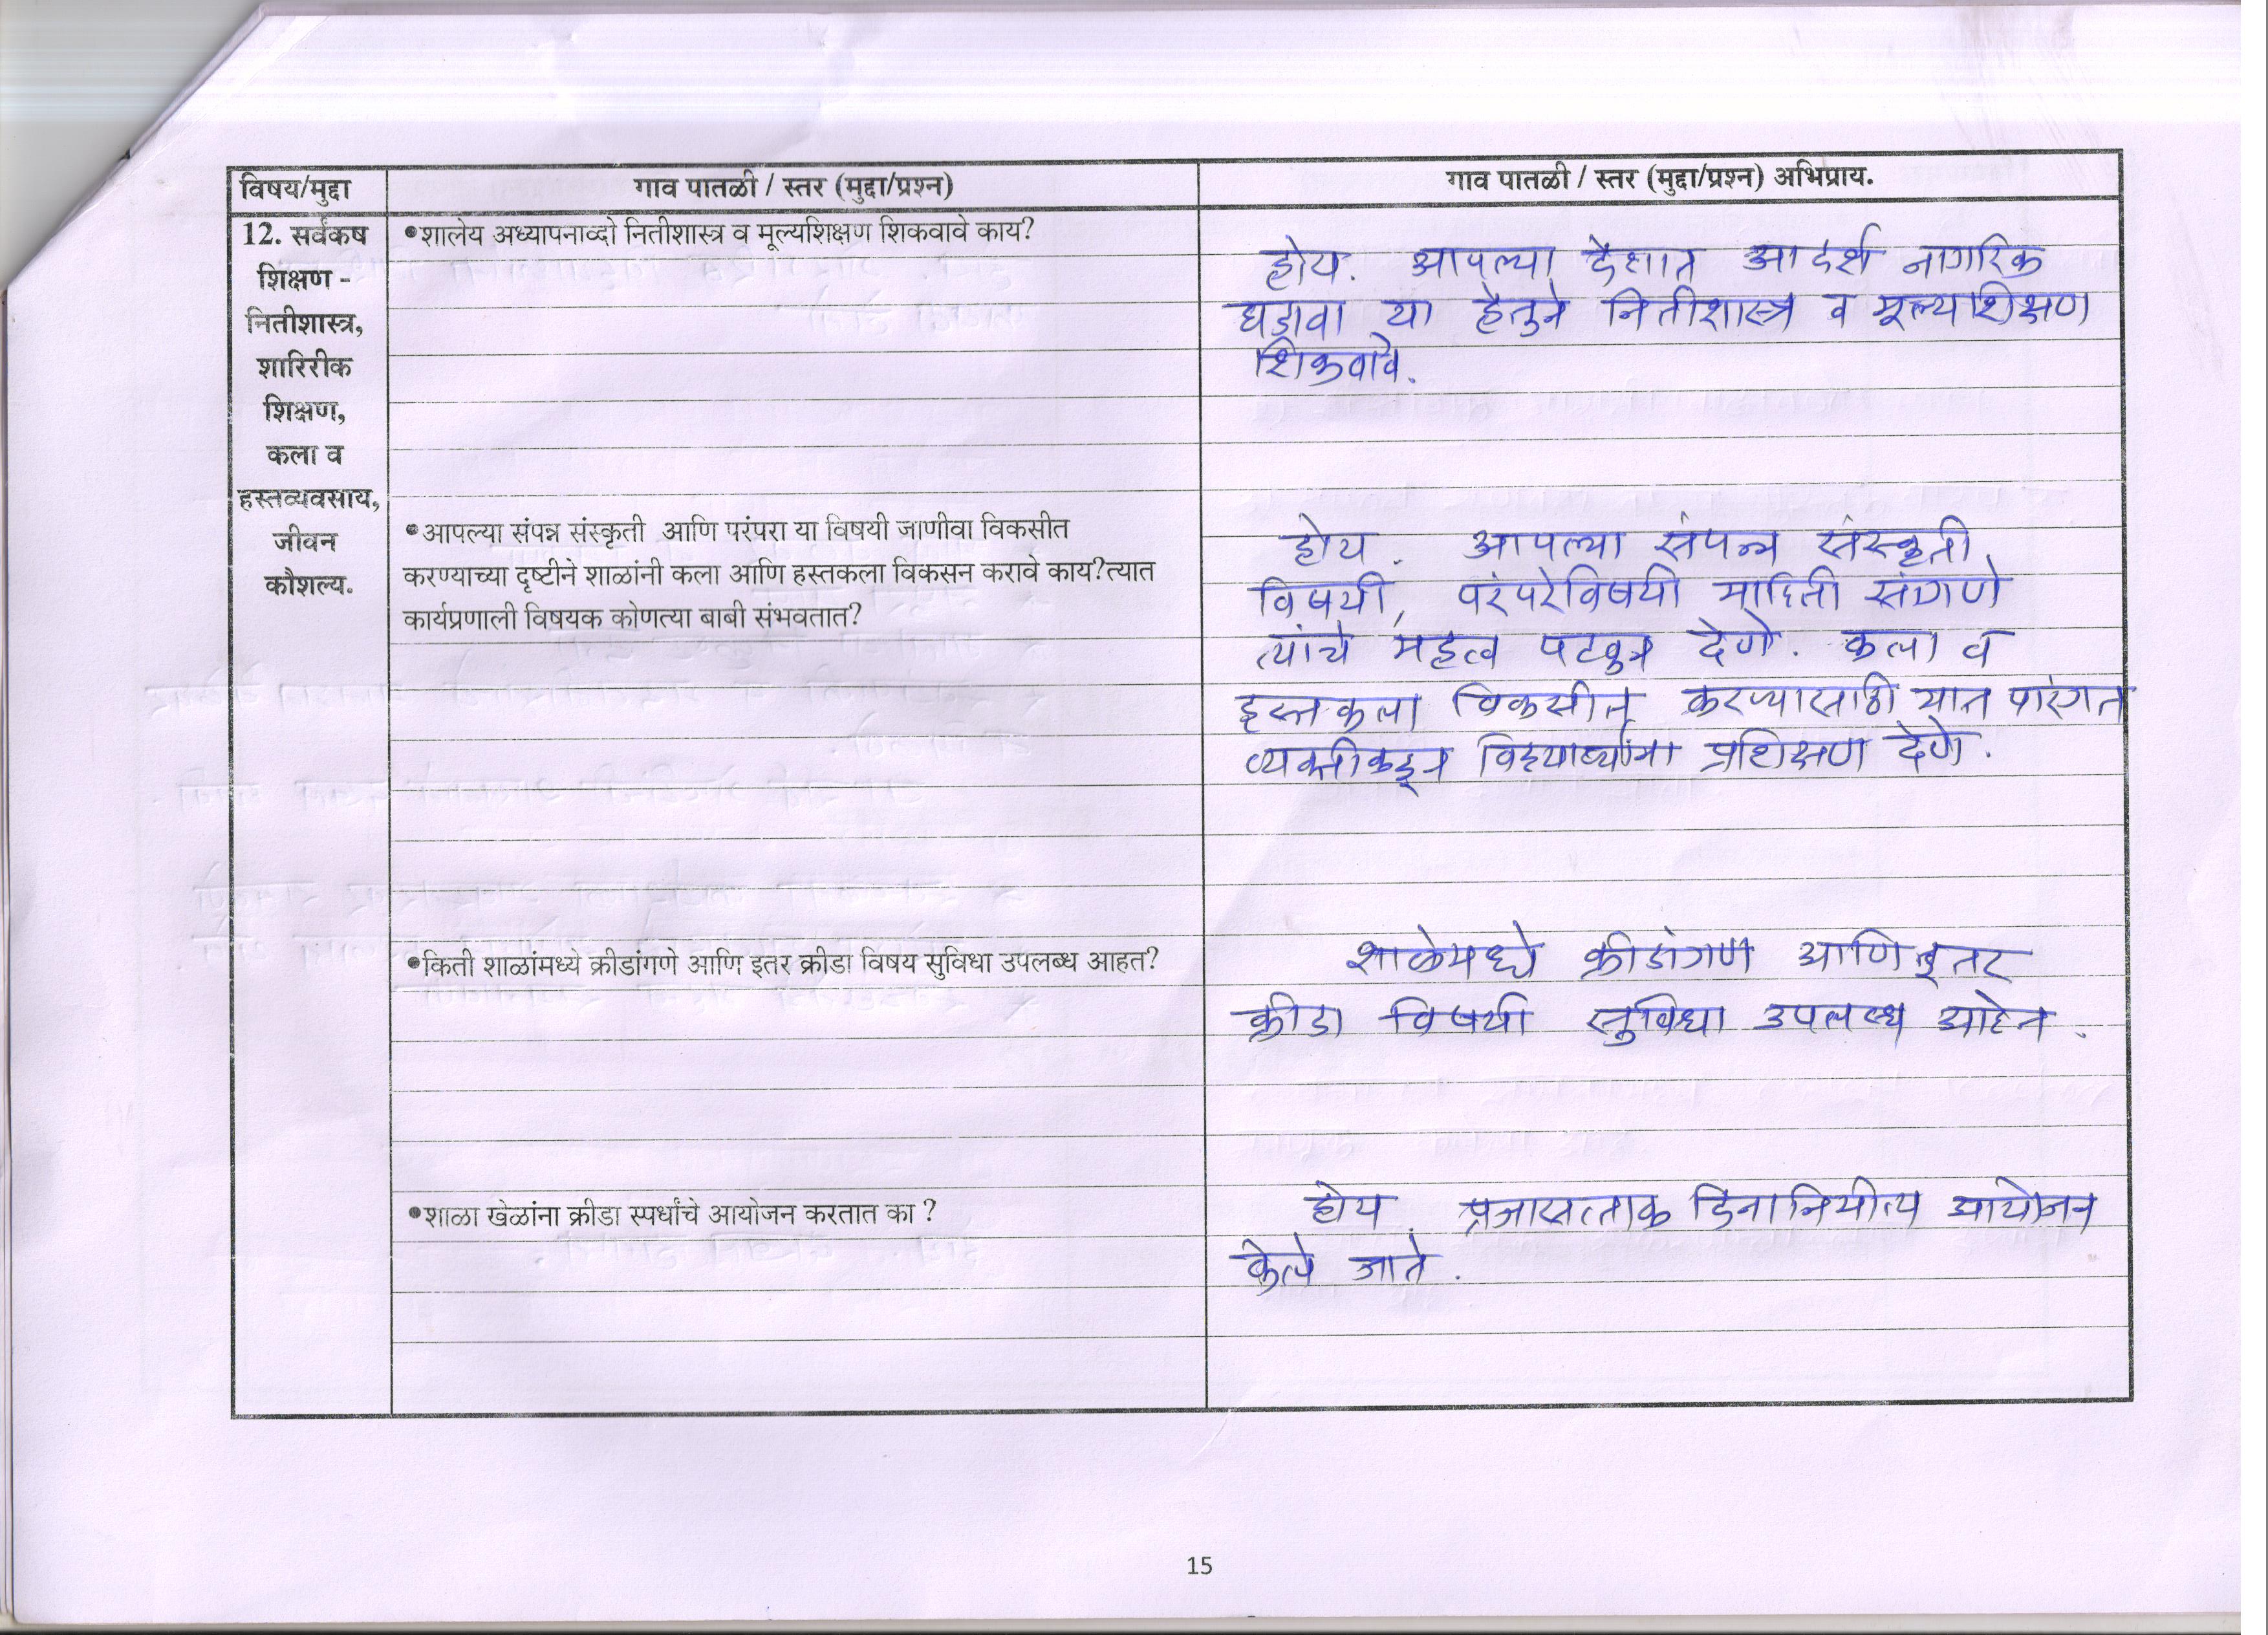 विषय/मुद्दा
गाव पातळी / स्तर (मुद्दा/प्रश्न)
गाव पातळी / स्तर (मुद्दा/प्रश्न) अभिप्राय.
12. सर्वंकष
शिक्षण -
नितीशास्त्र,
शारिरीक
शिक्षण,
कला व
हस्तव्यवसाय,
जीवन
कौशल्य.
•शालेय अध्यापनाव्दो नितीशास्त्र व मूल्यशिक्षण शिकवावे काय?
होय. आपल्या देशात आदर्श नागरिक
घडावा या हेतुने नितीशास्त्र व मूल्यशिक्षण
शिकवावे.
•आपल्या संपन्न संस्कृती आणि परंपरा या विषयी जाणीवा विकसीत
करण्याच्या दृष्टीने शाळांनी कला आणि हस्तकला विकसन करावे काय?त्यात
कार्यप्रणाली विषयक कोणत्या बाबी संभवतात?
होय. आपल्या संपन्न संस्कृती
विषयी, परंपरेविषयी माहिती सांगणे
त्यांचे महत्व पटवुन देणे. कला व
हस्तकला विकसीत करण्यासाठी यात पारंगत
व्यक्तीकडून विद्यार्थ्यांना प्रशिक्षण देणे.
•किती शाळांमध्ये क्रीडांगणे आणि इतर क्रीडा विषय सुविधा उपलब्ध आहत?
शाळेमध्ये क्रीडांगण आणि इतर
क्रीडा विषयी सुविधा उपलब्ध आहेत.
•शाळा खेळांना क्रीडा स्पर्धांचे आयोजन करतात का ?
होय. प्रजासत्ताक दिनानिमीत्य आयोजन
केले जाते.
15